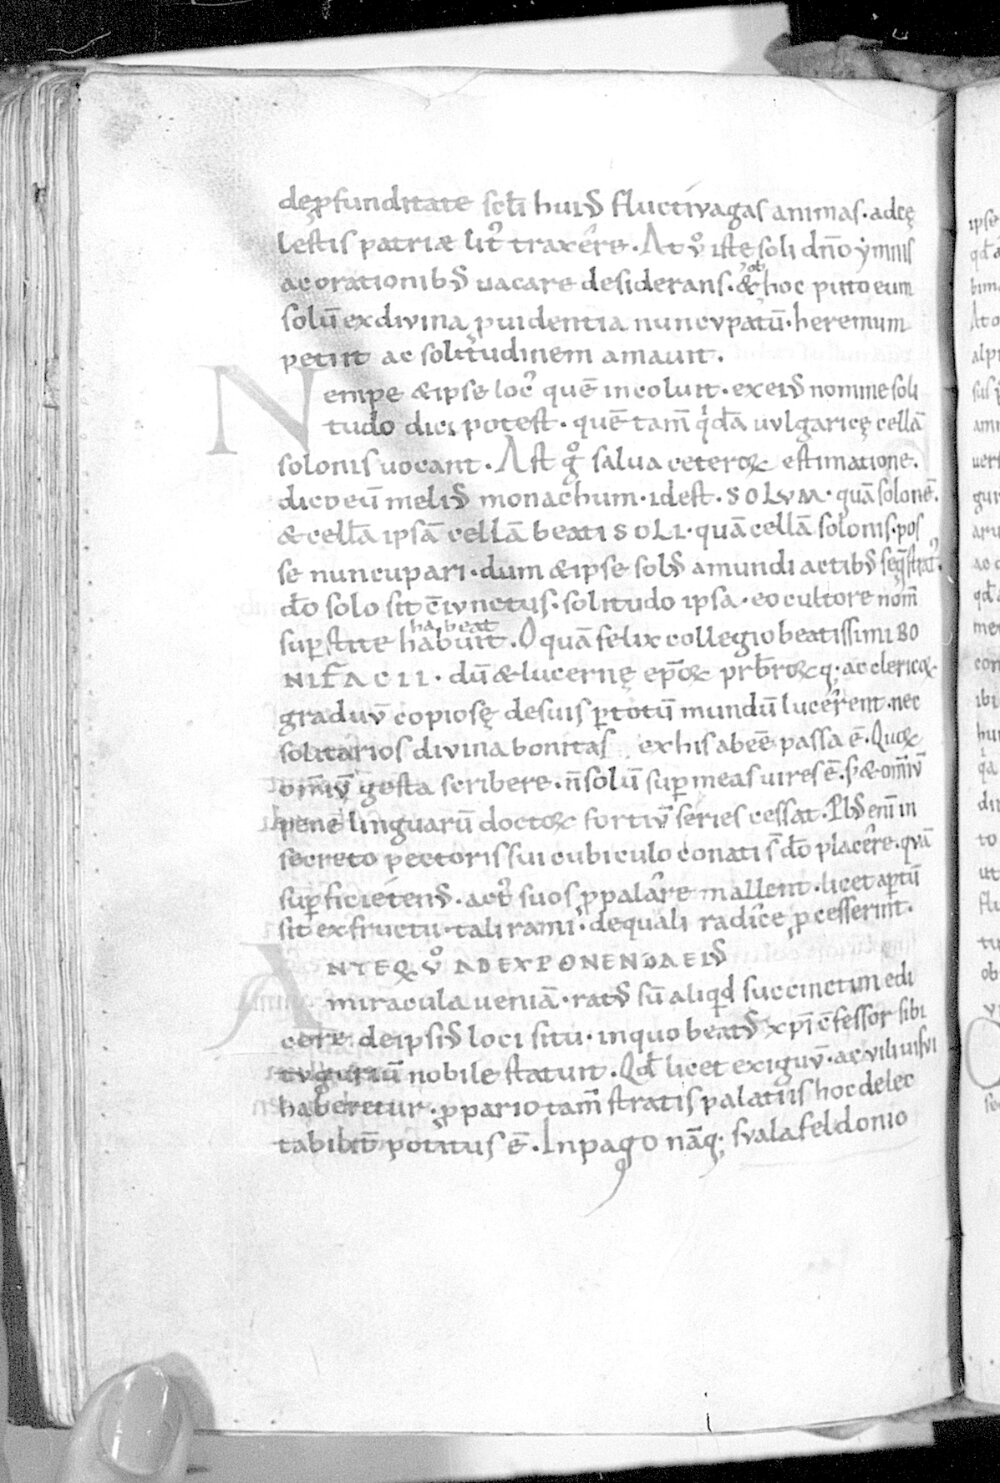 deꝓfunditate scłi huiꝰ fluctivagas animas· adcę
lestis patriæ lit᷒ traxer̄e· At v̊ iste soli dn̄o ymnis
ac orationibꝰ vacare desiderans· & ob hoc puto eum
solū ex divina ꝓuidentia nuncvpatū· heremum
petiit ac solitudinem amauit·
Nempe & ipse loc᷒ quē incoluit· ex eiꝰ nomine soli
tudo dici potest· quē tam̄ qͥdā uvlgaricę cellā
solonis uocant· Ast g̊ salua ceteroꝝ estimatione·
dico eū meliꝰ monachum· idest· SOLVM· quā solonē·
& cellā ipsā cellā beati SOLI· quā cellā solonis· pos
se nuncupari· dum & ipse solꝰ a mundi actibꝰ seq̄strat᷒·
dō solo sit c̄ivnctus· solitudo ipsa· eo cultore nom̄
sup̱stite habuit habeat· O quā felix collegio beatissimi BO
NIFACII· dū & lucernę ep̄oꝝ prb̄roꝝ q; ac clericoꝝ·
graduv̄ copiosę de suis p̱ totū mundū lucer̄ent· nec
solitarios divina bonitas ex his abeē passa ē· Quoꝝ
om̄iv̄ gesta scribere· n̄ solū sup̱ meas uires ē· s; & om̄iv̄
pene linguarū doctoꝝ fortiv̄ series cessat· Plꝰ enī in
secreto pectoris sui cubiculo conati s̄ dō placer̄e· quā
sup̱ficietenꝰ· act᷒ suos ꝓpalar̄e mallent· licet ap̱tū
sit ex fructu· tali rami· de quali radic̄e ꝓcesserint·
ANTEQ̄ V̊ AD EXPONENDA EIꝰ
miracula ueniā· ratꝰ sū aliqͥd succinctim edi
cere de ipsiꝰ loci situ· in quo beatꝰ xp̄i c̄fessor sibi
tvguriū nobile statuit· Qđ licet exiguv̄· ac vili uisvi
haberetur· ꝓpario tam̄ stratis palatiis hoc delec
tabilit̄ potitus ē· In pago nāq; svalafeldonio